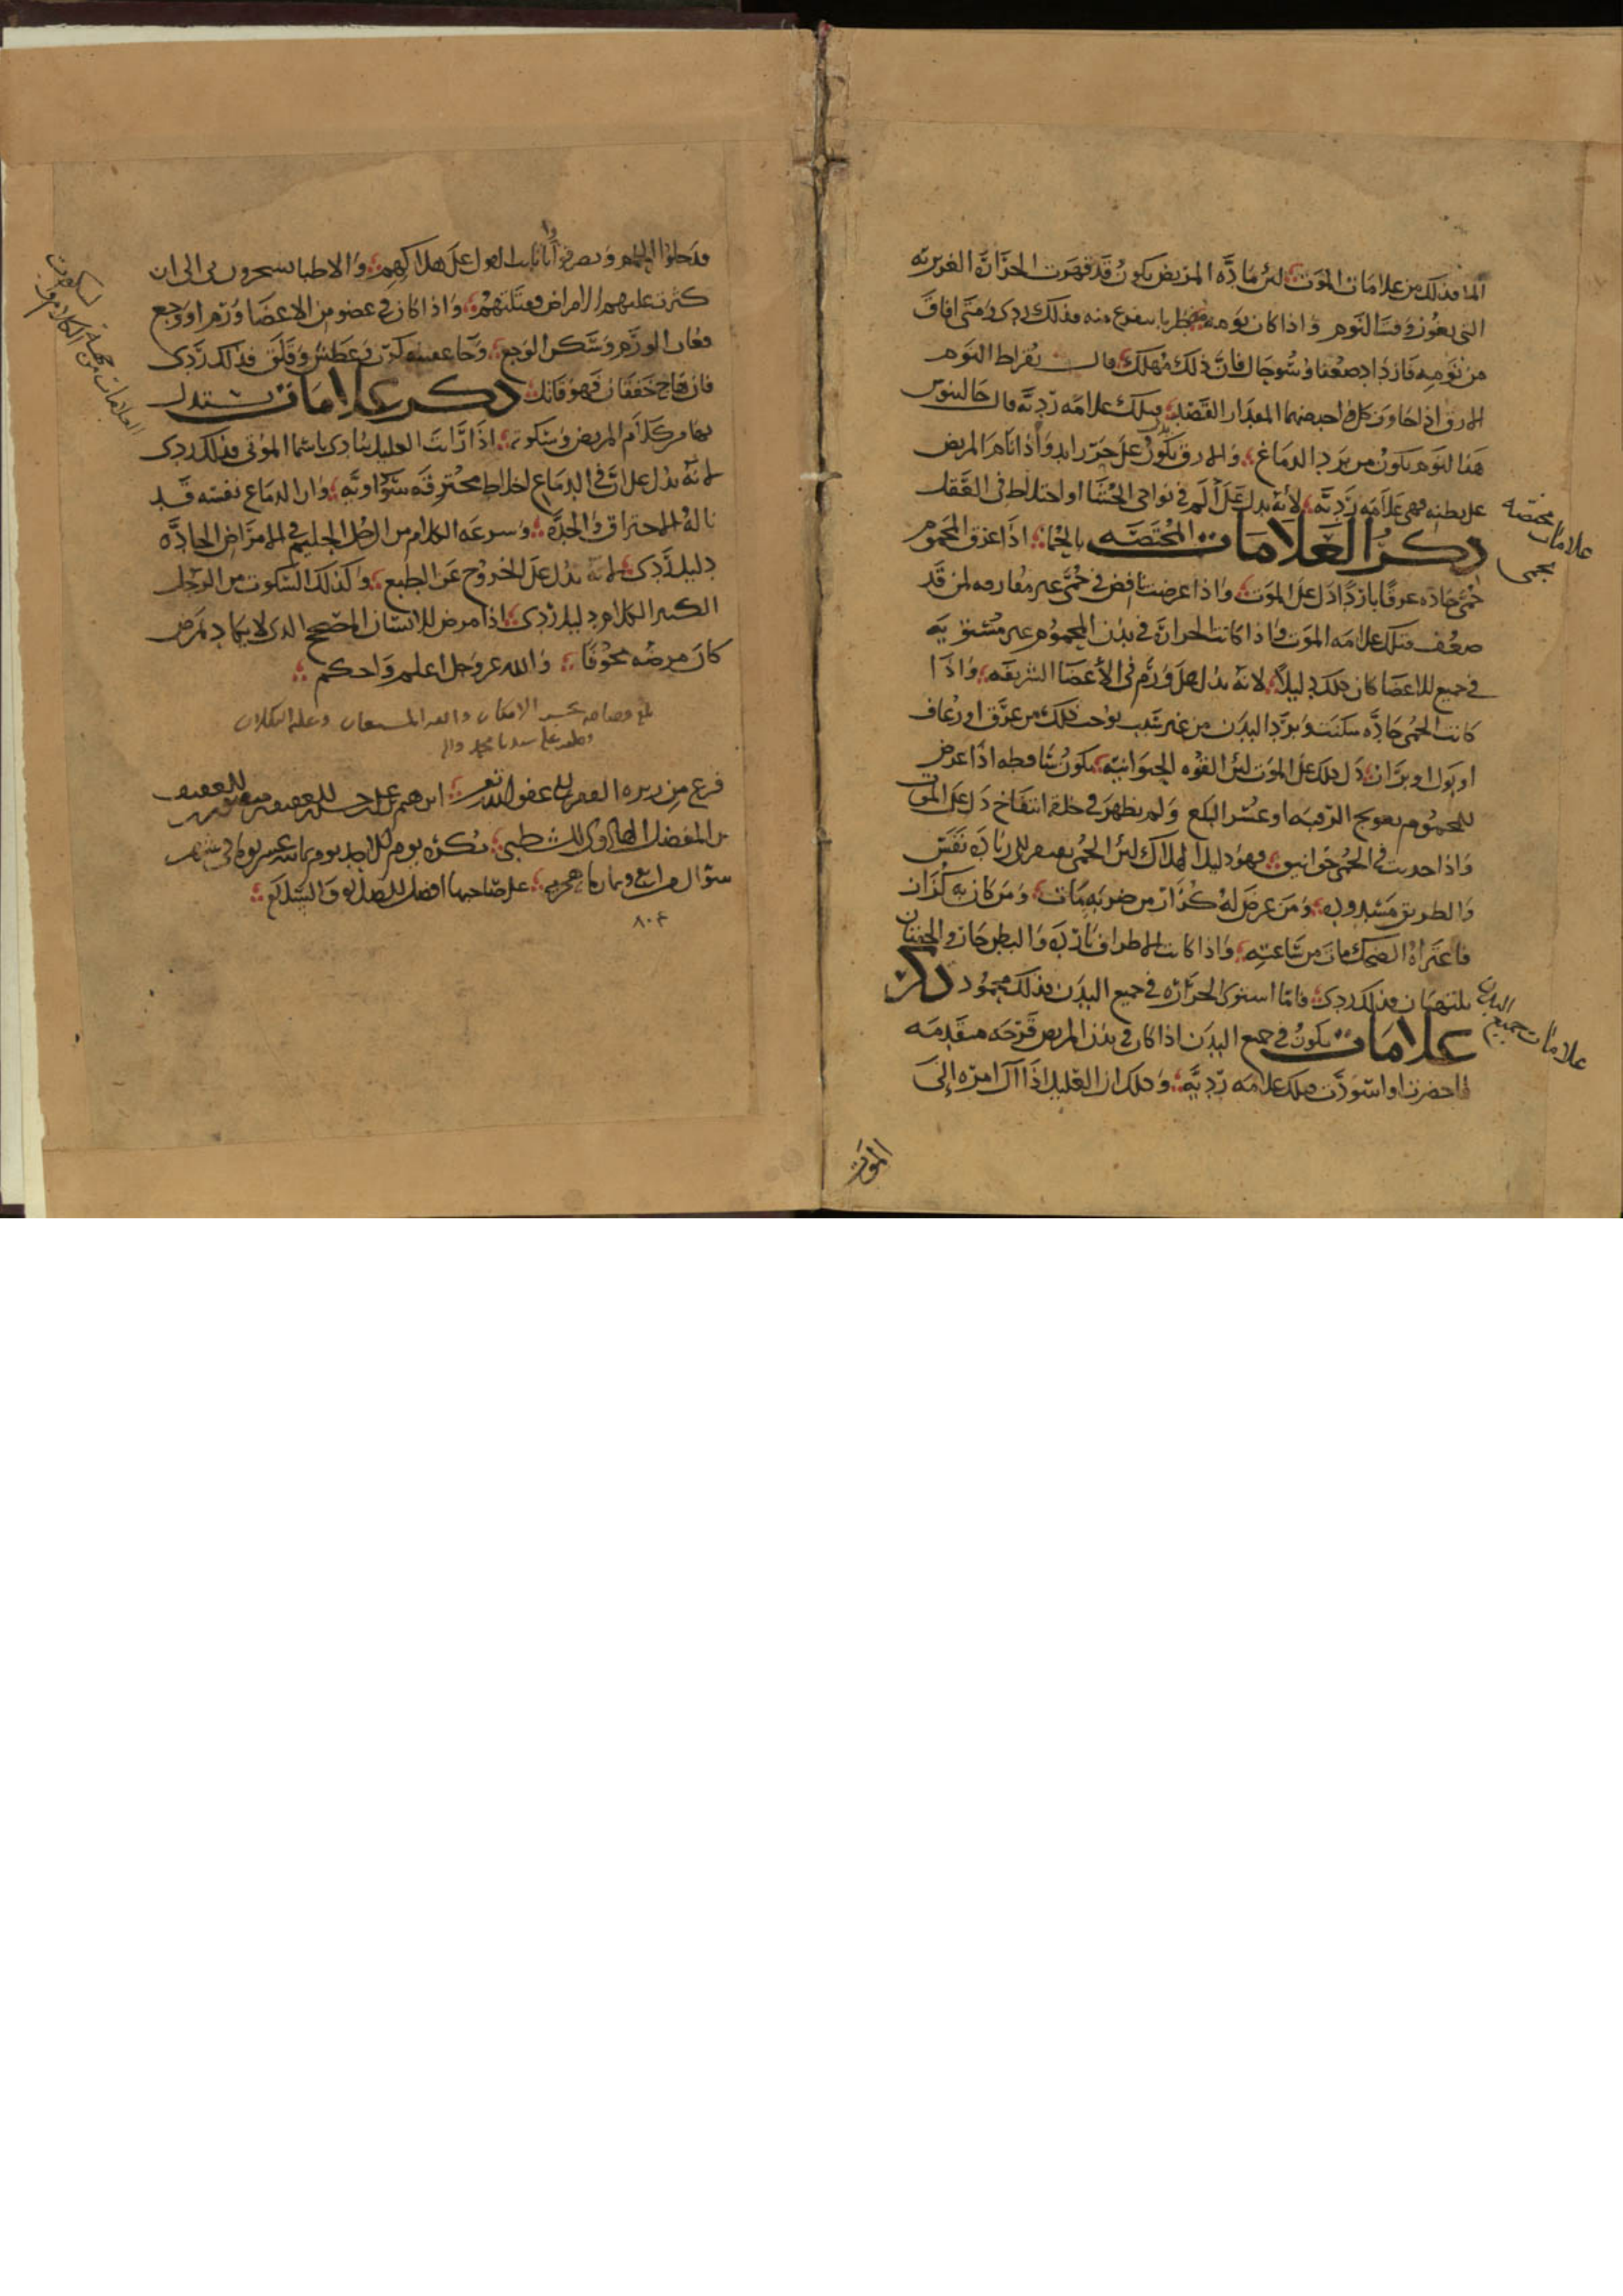 الما فذلك من علامات الموت لئن مادة المريض يكون قد قهرت الحرارة الغريزيه
التى وقت النوم واذا كان نومه منه فذلك ردى ومتى افاق
من نومه فازداد ضعفا وسو حال فان ذلك مهلك قال بقراط النوم
والارق اذا جاوز كل واحد منهما المقدار القصد فتلك علامه رديه قال جالينوس
هذا النوم يكون من برد الدماغ والارق يكون عن حر زايد واذا نام المريض
على بطنه فهى علامه رديه لانه يدل على الم فى نواحى الحشا او اختلاط فى العقل
علامات مختصه
بحمى
ذكر العلامات المختصه بالحما اذا عرق المحموم
حمى حاده عرقا باردا دل على الموت واذا عرضت نافض فى حمى غير مفارقه لمن قد
ضعف فتلك علامه الموت واذا كانت الحرارة فى بدن المحموم غير مستويه
فى جميع الاعضا كان ذلك دليلا لانه يدل على ورم فى الأعضا الشريفه واذا
كانت الحمى حاده سكنت وبرد البدن من غير سبب يوجب ذلك من عرق او رعاف
او بول او براز دل ذلك على الموت لئن القوه الحيوانيه يكون ساقطه اذا عرض
للمحموم تعويج الرقبه او عسر البلع ولم يظهر فى حلقه انتفاخ دل على الموت
واذا حدث فى الحمى خوانيق فهو دليل الهلاك لئن الحمى الى زيادة نفس
والطريق مسدوده ومن عرض له كزاز من ضربه مات ومن كان به كزاز
فاعتراه الضحك مات من ساعته واذا كانت الاطراف بارده والبطن حار والجنبان
يلتهبان فذلك ردى فاما استوى الحراره فى جميع البدن فذلك محمود ذكر
علامات جميع البدن
علامات يكون فى جميع البدن اذا كان فى بدن المريض قرحه متقدمه
فاخضرت او اسودت فتلك علامه رديه وذلك ان العليل اذا آل امره إلى
الموت
كثرت عليهم الامراض فقتلتهم واذا كان فى عضو من الاعضا ورم او وجع
فغاب الورم وسكن الوجع وجا عقيبه كرب وعطش وقلق فذلك ردى
فان هاج خفقان فهو قاتل ذكر علامات يستدل
العلامات من الكلام
بها من كلام المريض وسكوته اذا رأيت العليل ينادى باسما الموتى فذلك ردى
لانه يدل على ان فى الدماع اخلاط محترقه سوداويه وان الدماع نفسه قد
ناله الاحتراق والحدة وسرعه الكلام من الرجل الحليم فى الامراض الحاده
دليل ردى لانه يدل على الخروج عن الطبع وكذلك السكوت من الرجل
الكثير الكلام دليل ردى اذا مرض الانسان الصحيح الدى لا يكاد يمرض
كان مرضه مخوفا والله عز وجل اعلم واحكم
بلغ حسب الامكان والله المستعان وعليه التكلان
وصلى الله على سيدنا محمد واله
فرغ من الفقير الى عفو الله
يوم الاحد يوم فى شهر
شوال من اربع وثمان مايه هجريه على صاحبها افضل الصلاة والسلام
٨٠٤